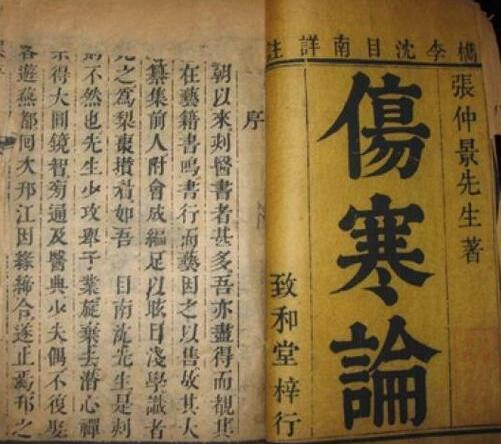 檇李沈目南詳註
張仲景先生著
傷寒論
致和堂梓行
序
朝以來刻醫書者甚多吾亦盡得而觀其
在藝籍書鳴書行而藝因之以售故其大
纂集前人附會成編足以耿日淺學識者
先之爲梨棗攢君如吾 目南沈先生是刻
則不然也先生少攻舉子業旋棄去潛心禪
宗得大圓鏡智旁通及醫典少失偶不復娶
客遊燕都回次邗江因緣締合遂止焉邗之